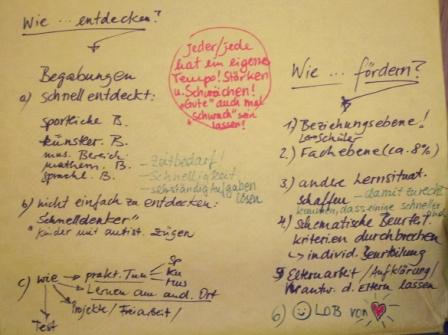 Wie ... entdecken?
Begabungen
a) schnell entdeckt:
sportliche B.
künstler. B.
mus. Bereich
mathem. B.
sprachl. B.
- Zeitbedarf!
- Schnelligkeit
- selbständig Aufgaben
lösen
b) nicht einfach zu entdecken:
"Schnelldenker"
"Kinder mit autist. Zügen
c) wie
prakt. Tun
Sp
Ku
Mus
Lernen am and. Ort
Projekte / Freiarbeit /
Test
Jeder/jede
hat ein eigenes
Tempo! Stärken
u. Schwächen!
"Gute" auch mal
"schwach" sein
lassen!
Wie ... fördern?
1.) Beziehungsebene!
Schüler
2.) Fachebene (ca. 8%)
3.) andere Lernsituat.
schaffen - damit zurecht
kommen, dass einige schneller
4.) schematische Beurteil.
kriterien durchbrechen
↳ individ. Beurteilung
5) Elternarbeit / Aufklärung /
Verantw. d. Eltern lassen
6) ☺ LOB von ♥